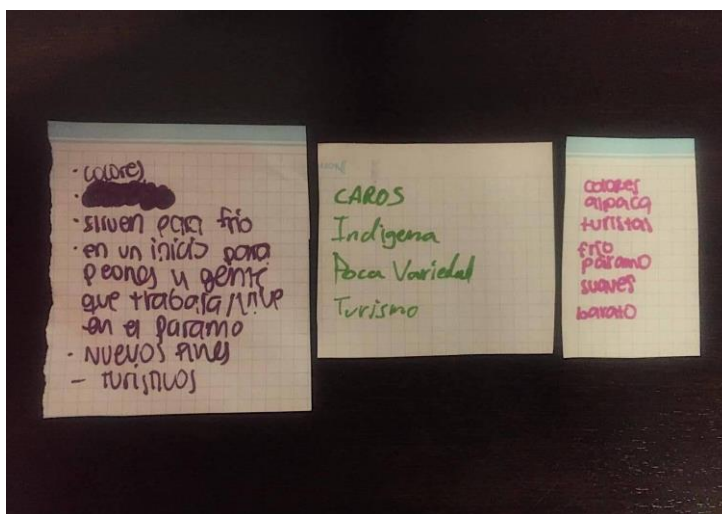 · colores
· sirven para frio
· en un inicio para
peones y gente
que trabaja/vive
en el paramo
· nuevos fines
- turisticos
CAROS
Indigena
Poca Variedad
Turismo
colores
alpaca
turistas
frio
páramo
suaves
barato